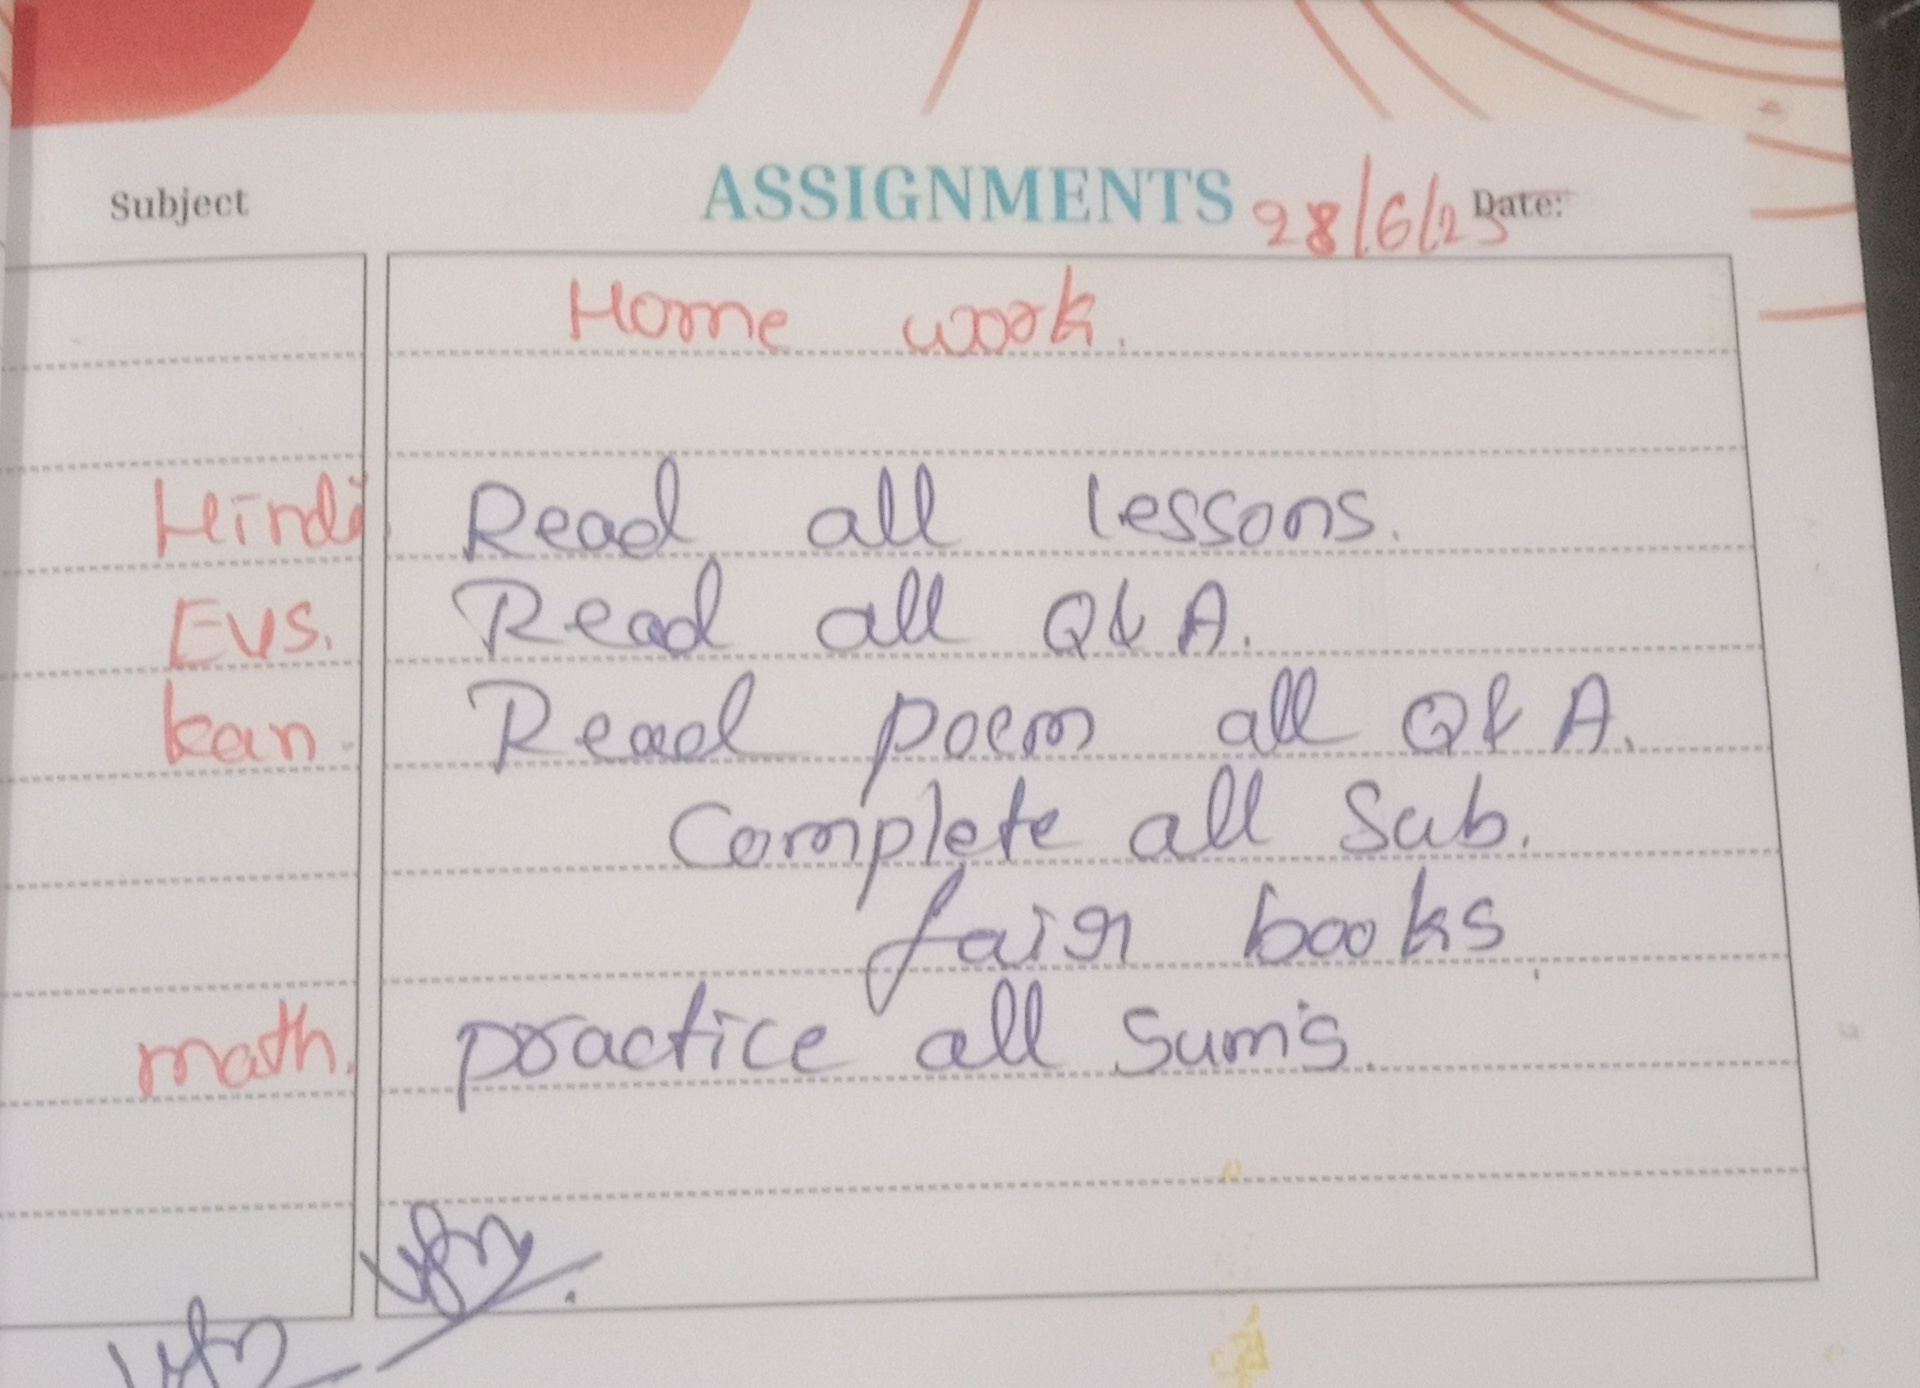 Subject ASSIGNMENTS 28/6/25 Date:
Home work.
Hindi Read all lessons.
EVS. Read all Q & A.
kan. Read poem all Q & A.
Complete all Sub.
fair books.
math. practice all Sum's.